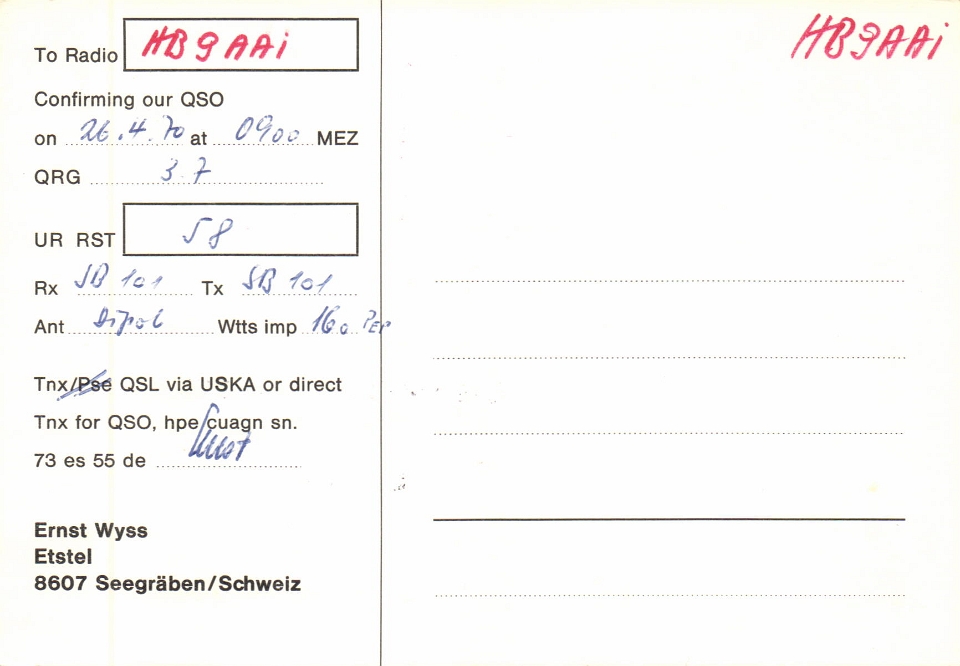 To Radio HB9AAi
Confirming our QSO
on 26.4.70 at 0900 MEZ
QRG 3.7
UR RST 58
Rx SB 101 Tx SB 101
Ant Dipol Wtts imp 160 PEP
Tnx/Pse QSL via USKA or direct
Tnx for QSO, hpe cuagn sn.
73 es 55 de Ernst
Ernst Wyss
Etstel
8607 Seegräben/Schweiz
HB9AAi